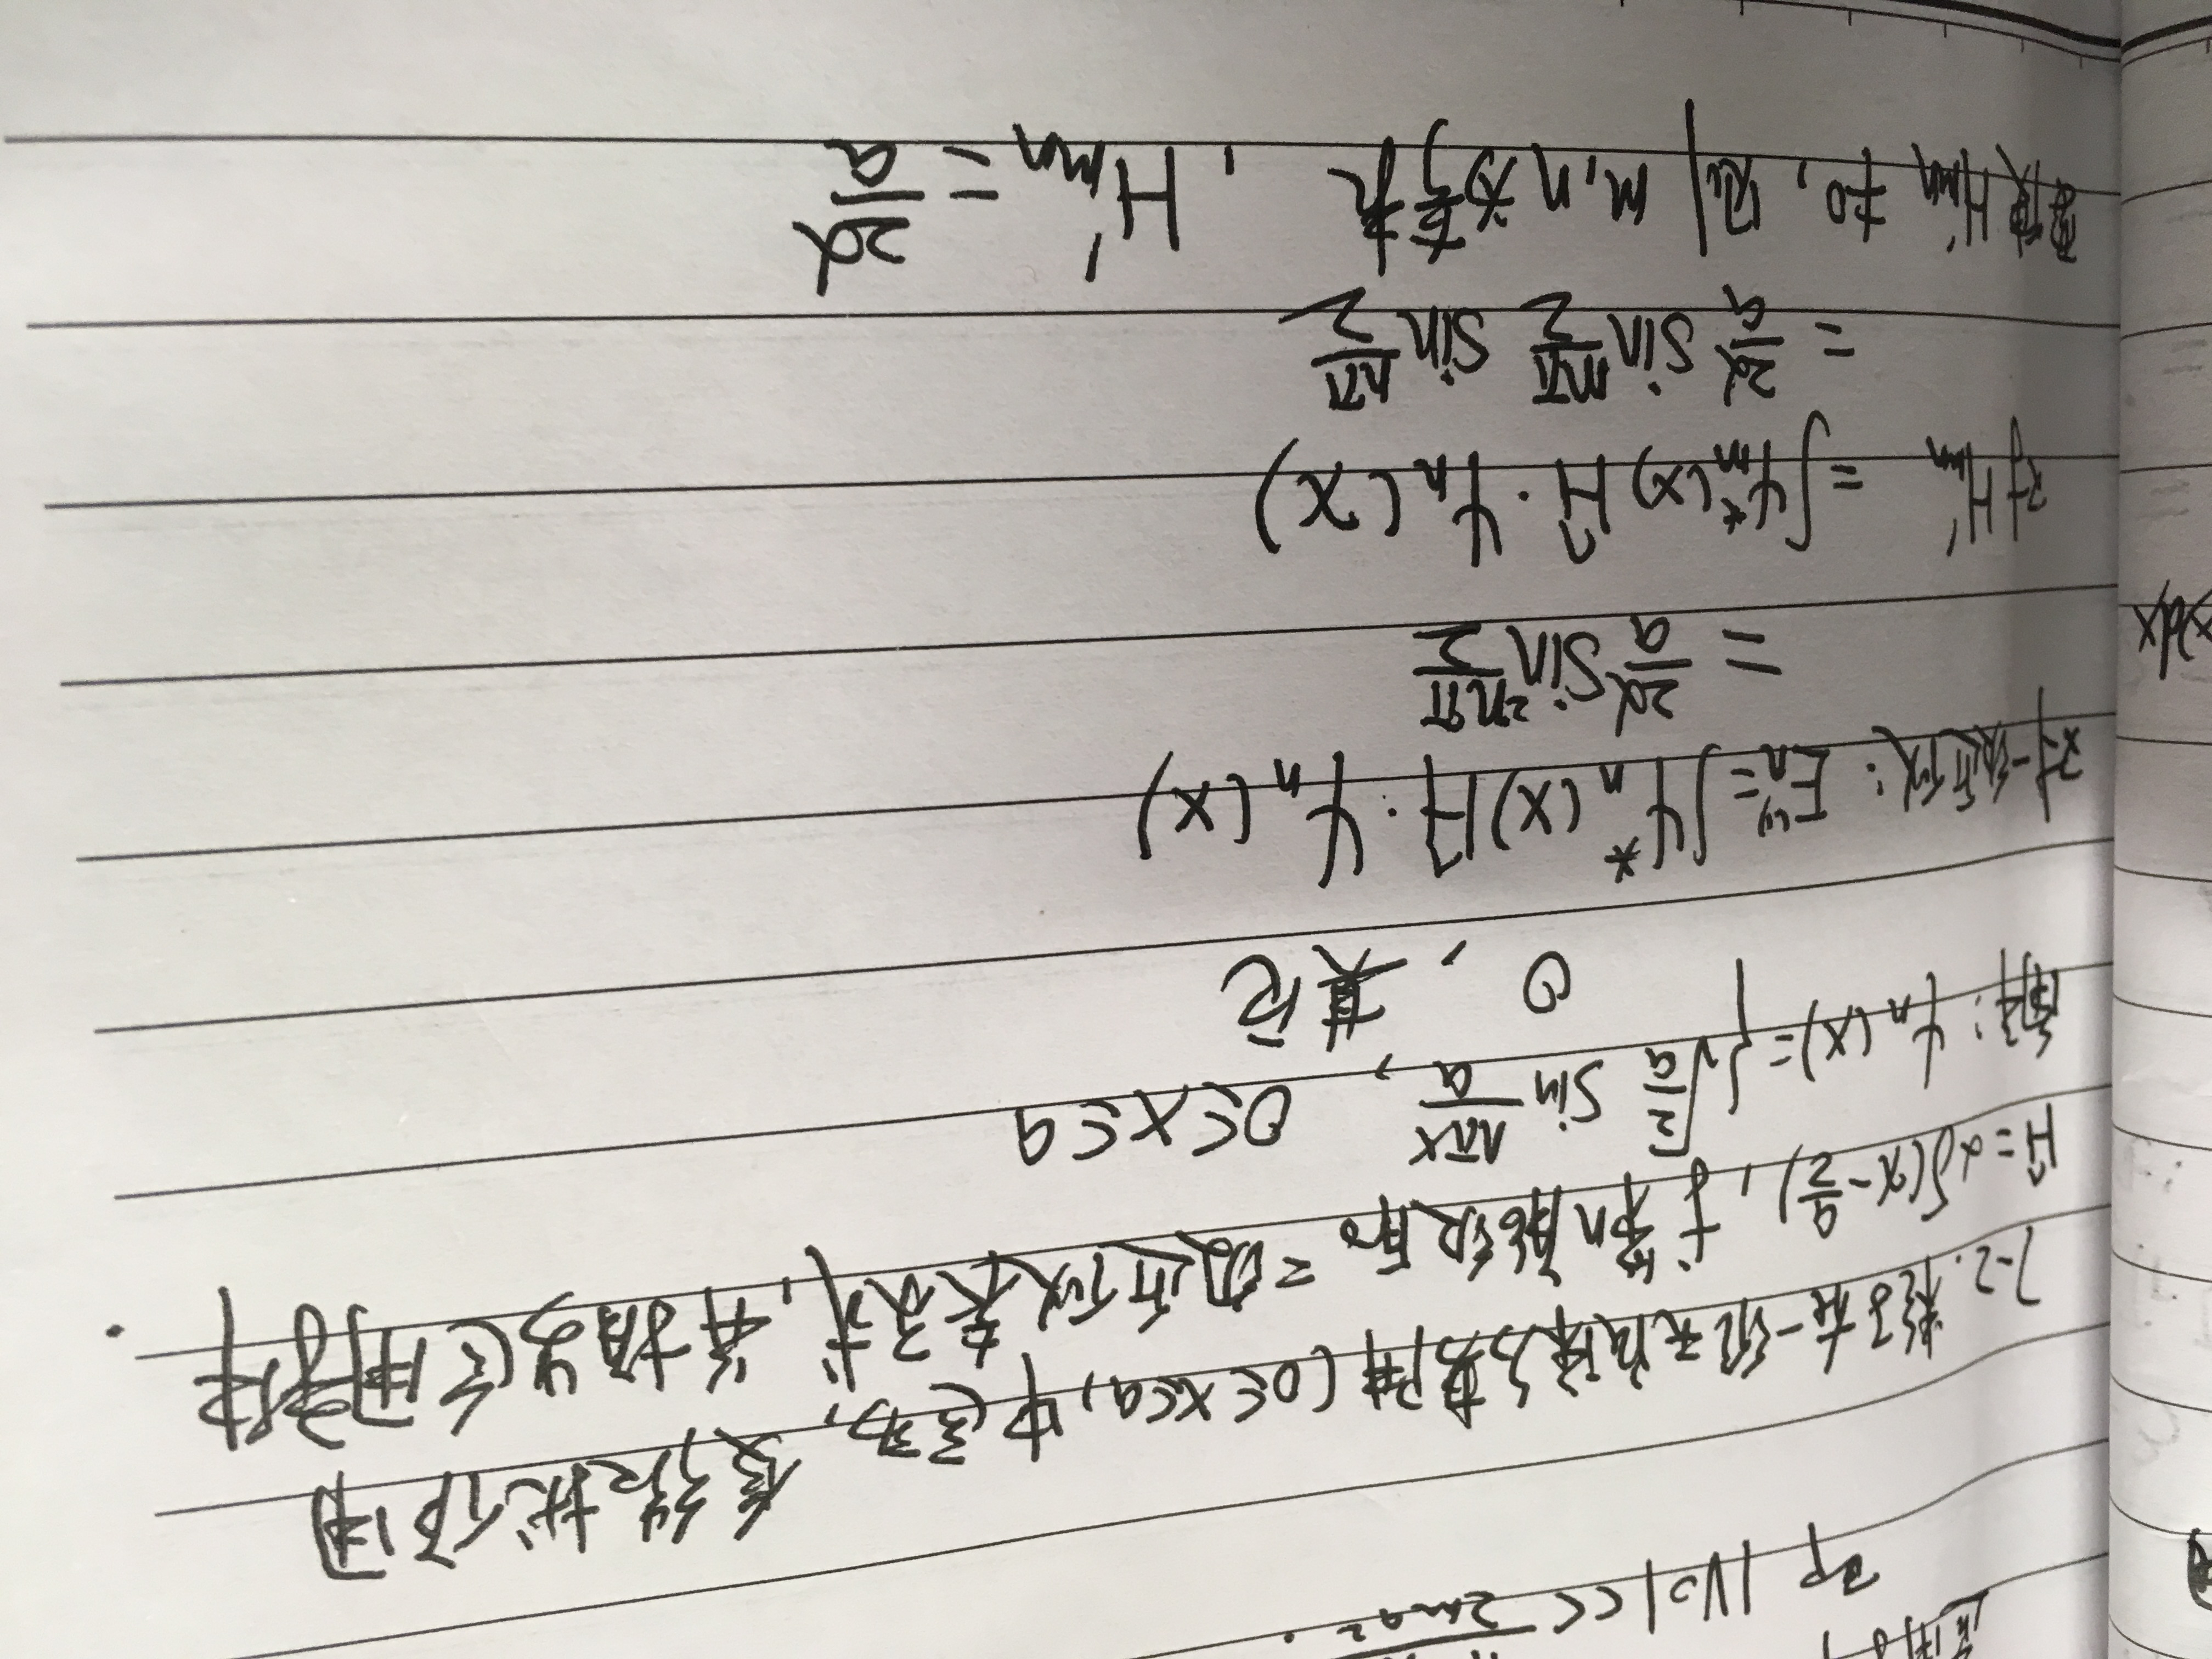 适用于
即 |V₀| << \frac{}{2ma²}.
7-2. 粒子在一维无限深势阱 (0≤x≤a) 中运动, 受微扰作用
Ĥ=αδ(x-\frac{a}{2}), 求第n能级的二级近似表示式, 并指出适用条件.
解: ψₙ(x)={√\frac{2}{a} sin\frac{nπx}{a}, 0≤x≤a
0, 其它
对一级近似: Eₙ⁽¹⁾=∫ψ*ₙ(x)Ĥ·ψₙ(x)
=\frac{2α}{a}sin²\frac{nπ}{2}
)dx
对H'ₘₙ =∫ψₘ*(x)Ĥ·ψₙ(x)
=\frac{2α}{a} sin\frac{mπ}{2} sin\frac{nπ}{2}
要使H'ₘₙ≠0, 则 m,n为奇数, H'ₘₙ=\frac{2α}{a}